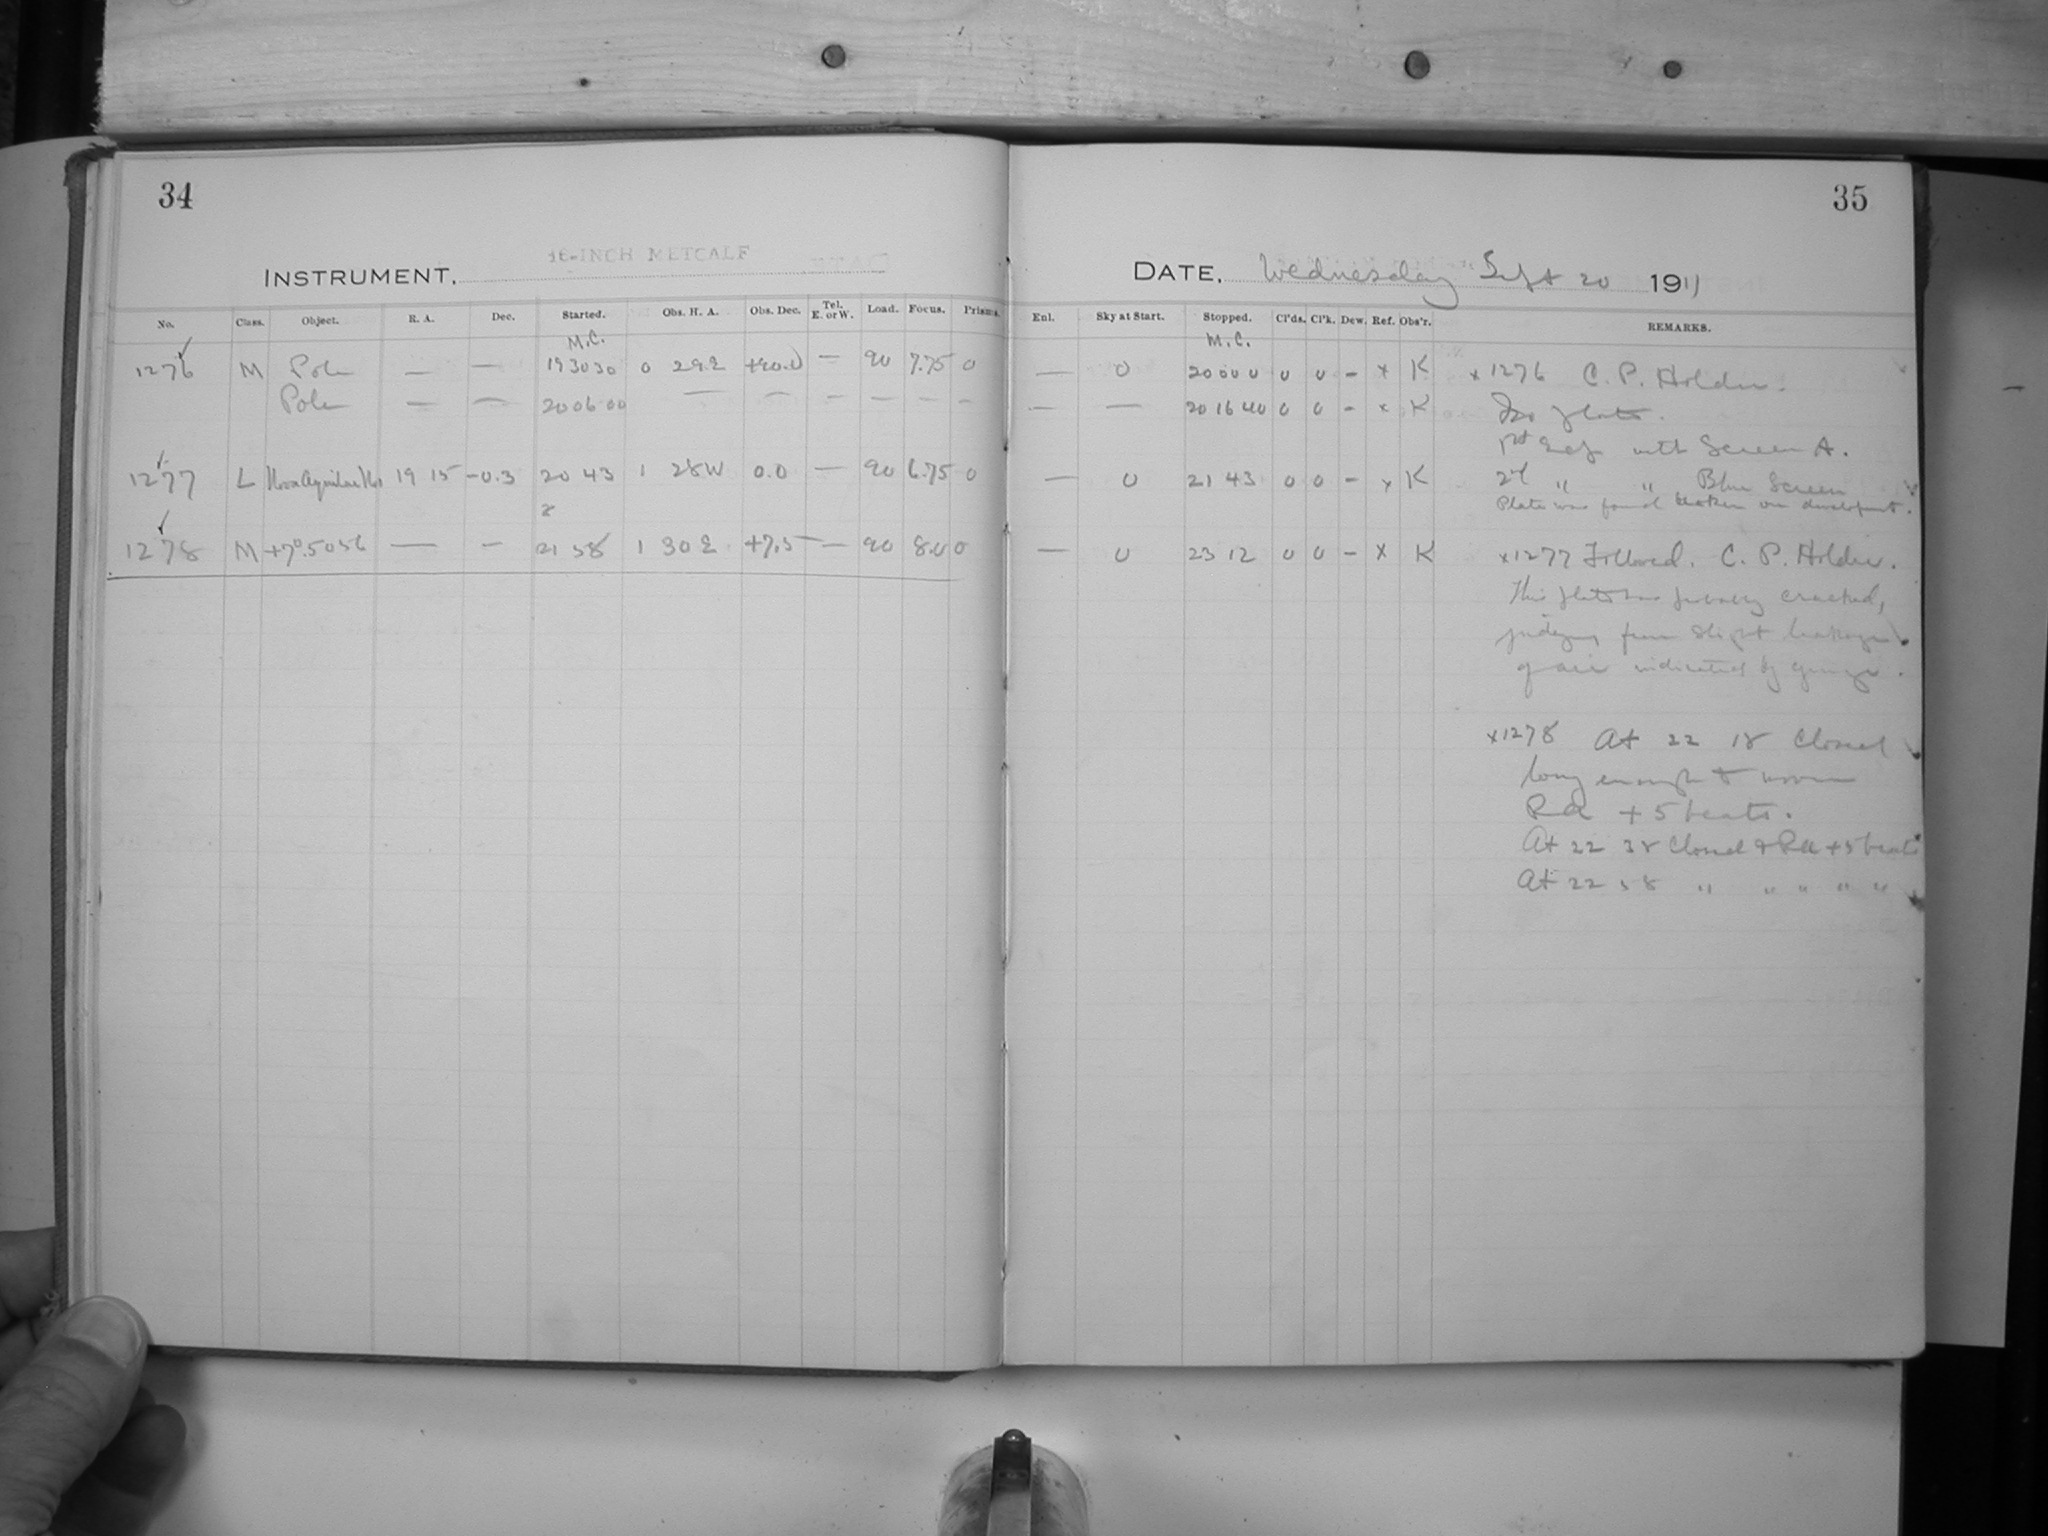 34
35
16-INCH METCALF
INSTRUMENT.
DATE, Wednesday Sept 20 1911
No. Class. Object. R. A. Dec. Started. Obs. H. A. Obs. Dec. Tel. E. or W. Load. Focus. Prisms.
Enl. Sky at Start. Stopped. Cl'ds. Cl'k. Dew. Ref. Obs'r. REMARKS.
M.C. M.C.
1276 M Pole — — 19 30 30 0 29 E +90.0 — 90 7.75 0 — 0 20 00 0 0 0 - x K x 1276 C. P. Holder.
Pole — — 20 06 00 — — — — — — — — 20 16 40 0 0 - x K Iso plate.
1st Exp with Screen A.
1277 L Nova Aquilae No 1 19 15 -0.3 20 43 1 28 W 0.0 — 90 6.75 0 — 0 21 43 0 0 - x K 2d " " Blue Screen
Plate was found broken on development.
1278 M +7°.5056 — — 21 58 1 30 E +7.5 — 90 8.0 0 — 0 23 12 0 0 - x K x1277 Followed. C. P. Holder.
This plate was probably cracked,
judging from slight leakage
of air indicated by gauge.
x1278 At 22 18 closed
long enough to move
RA + 5 beats.
At 22 38 closed & RA + 5 beats
At 22 58 " " " " "